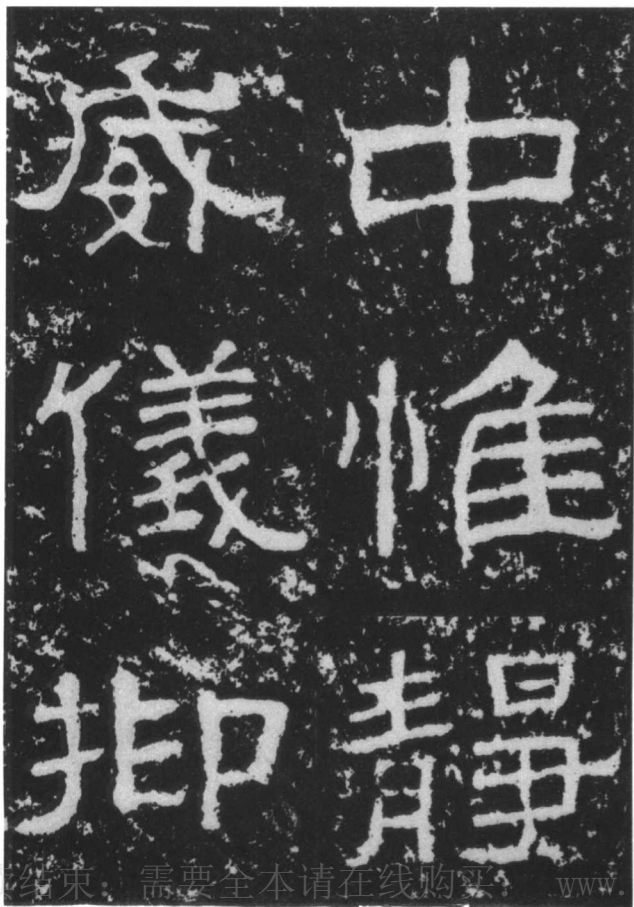 中惟静
威儀抑
结束： 需要全本请在线购买： www.